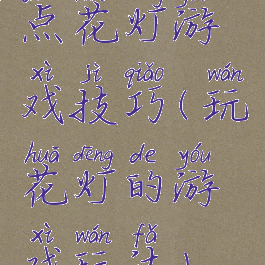 点花灯游
xì jì qiǎo wán
戏技巧(玩
huā dēng de yóu
花灯的游
xì wán fǎ
戏玩法)